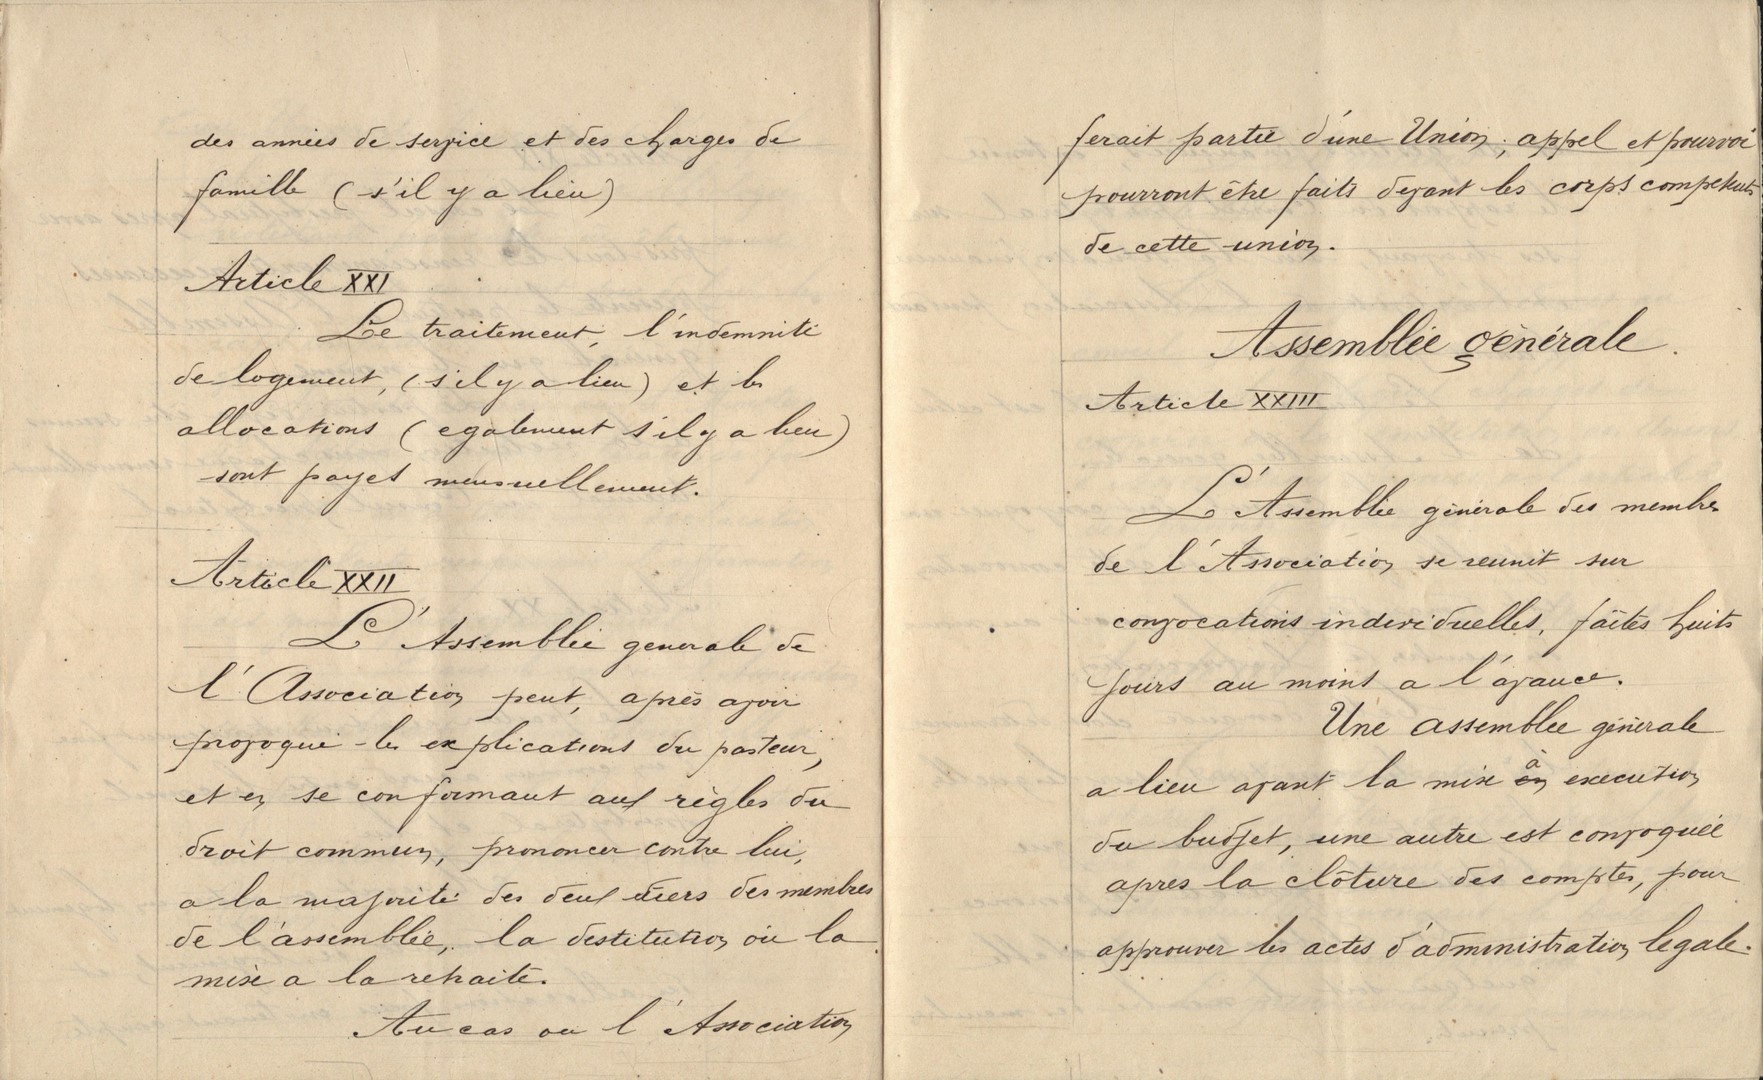 des années de service et des charges de
famille (s'il y a lieu)
Article XXI
Le traitement, l'indemnité
de logement, (s'il y a lieu) et les
allocations (egalement s'il y a lieu)
sont payes mensuellement.
Article XXII
L'Assemblée generale de
l'Association peut, après avoir
provoqué les explications du pasteur,
et en se conformant aux règles du
droit commun, prononcer contre lui,
a la majorité des deux tiers des membres
de l'assemblée, la destitution ou la
mise a la retraite.
Au cas ou l'Association
ferait partie d'une Union; appel et pourvoi
pourront être faits devant les corps competents
de cette union.
Assemblée générale.
Article XXIII
L'Assemblée générale des membres
de l'Association se reunit sur
convocations individuelles, faites huits
jours au moins a l'avance.
Une assemblée générale
a lieu avant la mise à execution
du budjet, une autre est convoquée
apres la clôture des comptes, pour
approuver les actes d'administration legale.